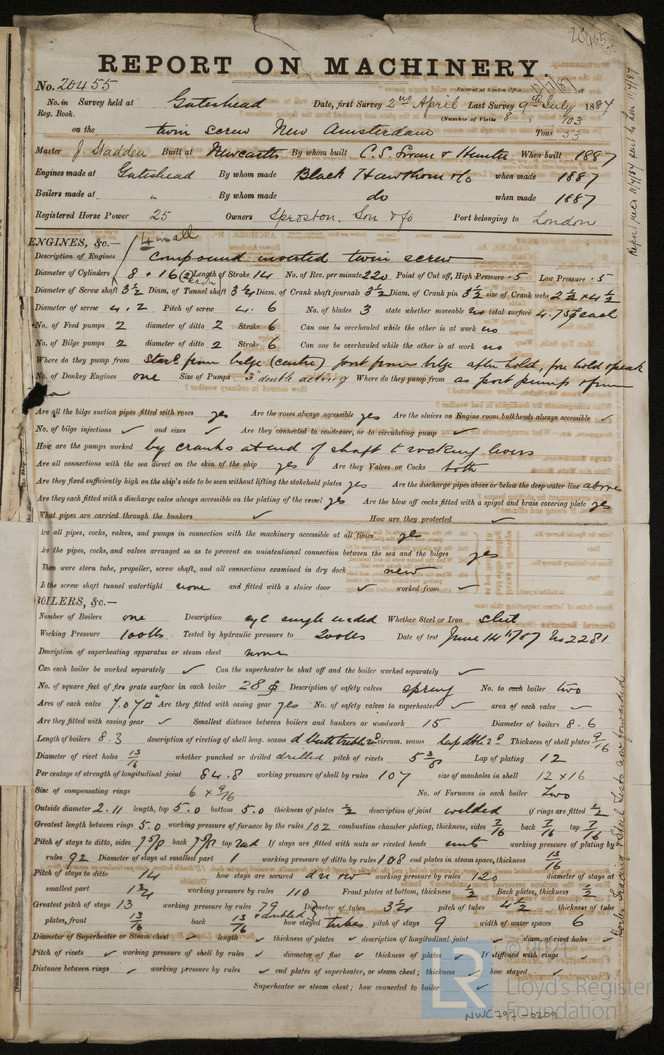 20455
REPORT ON MACHINERY.
No. 20455
No. in Reg. Book. Survey held at Gateshead Date, first Survey 2nd April Last Survey 9th July 1887
(Number of Visits 8
on the twin screw New Amsterdam Tons 103 53
Master J. Hadden Built at Newcastle By whom built C.S. Swan & Hunter When built 1887
Engines made at Gateshead By whom made Black Hawthorn & Co when made 1887
Boilers made at " By whom made do when made 1887
Registered Horse Power 25 Owners Sproston, Son & Co Port belonging to London
ENGINES, &c.—
Description of Engines compound inverted twin screw
Diameter of Cylinders 8 . 16 (2) each Length of Stroke 14 No. of Rev. per minute 220 Point of Cut off, High Pressure .5 Low Pressure .5
Diameter of Screw shaft 3½ Diam. of Tunnel shaft 3¼ Diam. of Crank shaft journals 3½ Diam. of Crank pin 3½ size of Crank webs 2½ x 4½
Diameter of screw 4.2 Pitch of screw 4.6 No. of blades 3 state whether moveable no total surface 4.75 each
No. of Feed pumps 2 diameter of ditto 2 Stroke 6 Can one be overhauled while the other is at work no
No. of Bilge pumps 2 diameter of ditto 2 Stroke 6 Can one be overhauled while the other is at work no
Where do they pump from Starb from bilge (centre) port from bilge after hold, fore hold & peak
No. of Donkey Engines one Size of Pumps 3" double acting Where do they pump from as port pumps & from
sea
Are all the bilge suction pipes fitted with roses yes Are the roses always accessible yes Are the sluices on Engine room bulkheads always accessible ✓
No. of bilge injections ✓ and sizes ✓ Are they connected to condenser, or to circulating pump ✓
How are the pumps worked by cranks at end of shaft & rocking levers
Are all connections with the sea direct on the skin of the ship yes Are they Valves or Cocks both
Are they fixed sufficiently high on the ship's side to be seen without lifting the stokehold plates yes Are the discharge pipes above or below the deep water line above
Are they each fitted with a discharge valve always accessible on the plating of the vessel yes Are the blow off cocks fitted with a spigot and brass covering plate yes
What pipes are carried through the bunkers ✓ How are they protected ✓
Are all pipes, cocks, valves, and pumps in connection with the machinery accessible at all times yes
Are the pipes, cocks, and valves arranged so as to prevent an unintentional connection between the sea and the bilges yes
When were stern tube, propeller, screw shaft, and all connections examined in dry dock new
Is the screw shaft tunnel watertight none and fitted with a sluice door ✓ worked from ✓
BOILERS, &c.—
Number of Boilers one Description cyl single ended Whether Steel or Iron steel
Working Pressure 100 lbs Tested by hydraulic pressure to 200 lbs Date of test June 14th/87 No 2281
Description of superheating apparatus or steam chest none
Can each boiler be worked separately ✓ Can the superheater be shut off and the boiler worked separately ✓
No. of square feet of fire grate surface in each boiler 28 Description of safety valves spring No. to each boiler two
Area of each valve 7.07 Are they fitted with easing gear yes No. of safety valves to superheater ✓ area of each valve ✓
Are they fitted with easing gear ✓ Smallest distance between boilers and bunkers or woodwork 15 Diameter of boilers 8.6
Length of boilers 8.3 description of riveting of shell long. seams circum. seams Thickness of shell plates 9/16
Diameter of rivet holes 13/16 whether punched or drilled drilled pitch of rivets 5 3/8 Lap of plating 12
Percentage of strength of longitudinal joint 84.8 working pressure of shell by rules 107 size of manholes in shell 12 x 16
Size of compensating rings 6 x 9/16 No. of Furnaces in each boiler two
Outside diameter 2.11 length, top 5.0 bottom 5.0 thickness of plates ½ description of joint welded if rings are fitted ½
Greatest length between rings 5.0 working pressure of furnace by the rules 102 combustion chamber plating, thickness, sides 7/16 back 7/16 top 7/16
Pitch of stays to ditto, sides 7 5/8 back 7 5/8 top If stays are fitted with nuts or riveted heads nuts working pressure of plating by
rules 92 Diameter of stays at smallest part 1 working pressure of ditto by rules 108 end plates in steam space, thickness 13/16
Pitch of stays to ditto 14 how stays are secured working pressure by rules 120 diameter of stays at
smallest part 1¾ working pressure by rules 110 Front plates at bottom, thickness ½ Back plates, thickness ½
Greatest pitch of stays 13 working pressure by rules 79 Diameter of tubes 3¼ pitch of tubes 4½ thickness of tube
plates, front 13/16 back 13/16 doubled how stayed tubes pitch of stays 9 width of water spaces 6
Diameter of Superheater or Steam chest ✓ length ✓ thickness of plates ✓ description of longitudinal joint ✓ diam. of rivet holes ✓
Pitch of rivets ✓ working pressure of shell by rules ✓ diameter of flue ✓ thickness of plates ✓ If stiffened with rings ✓
Distance between rings ✓ working pressure by rules ✓ end plates of superheater, or steam chest; thickness ✓ how stayed ✓
Superheater or steam chest; how connected to boiler ✓
Lloyd's Register
Foundation
NWC797-0209